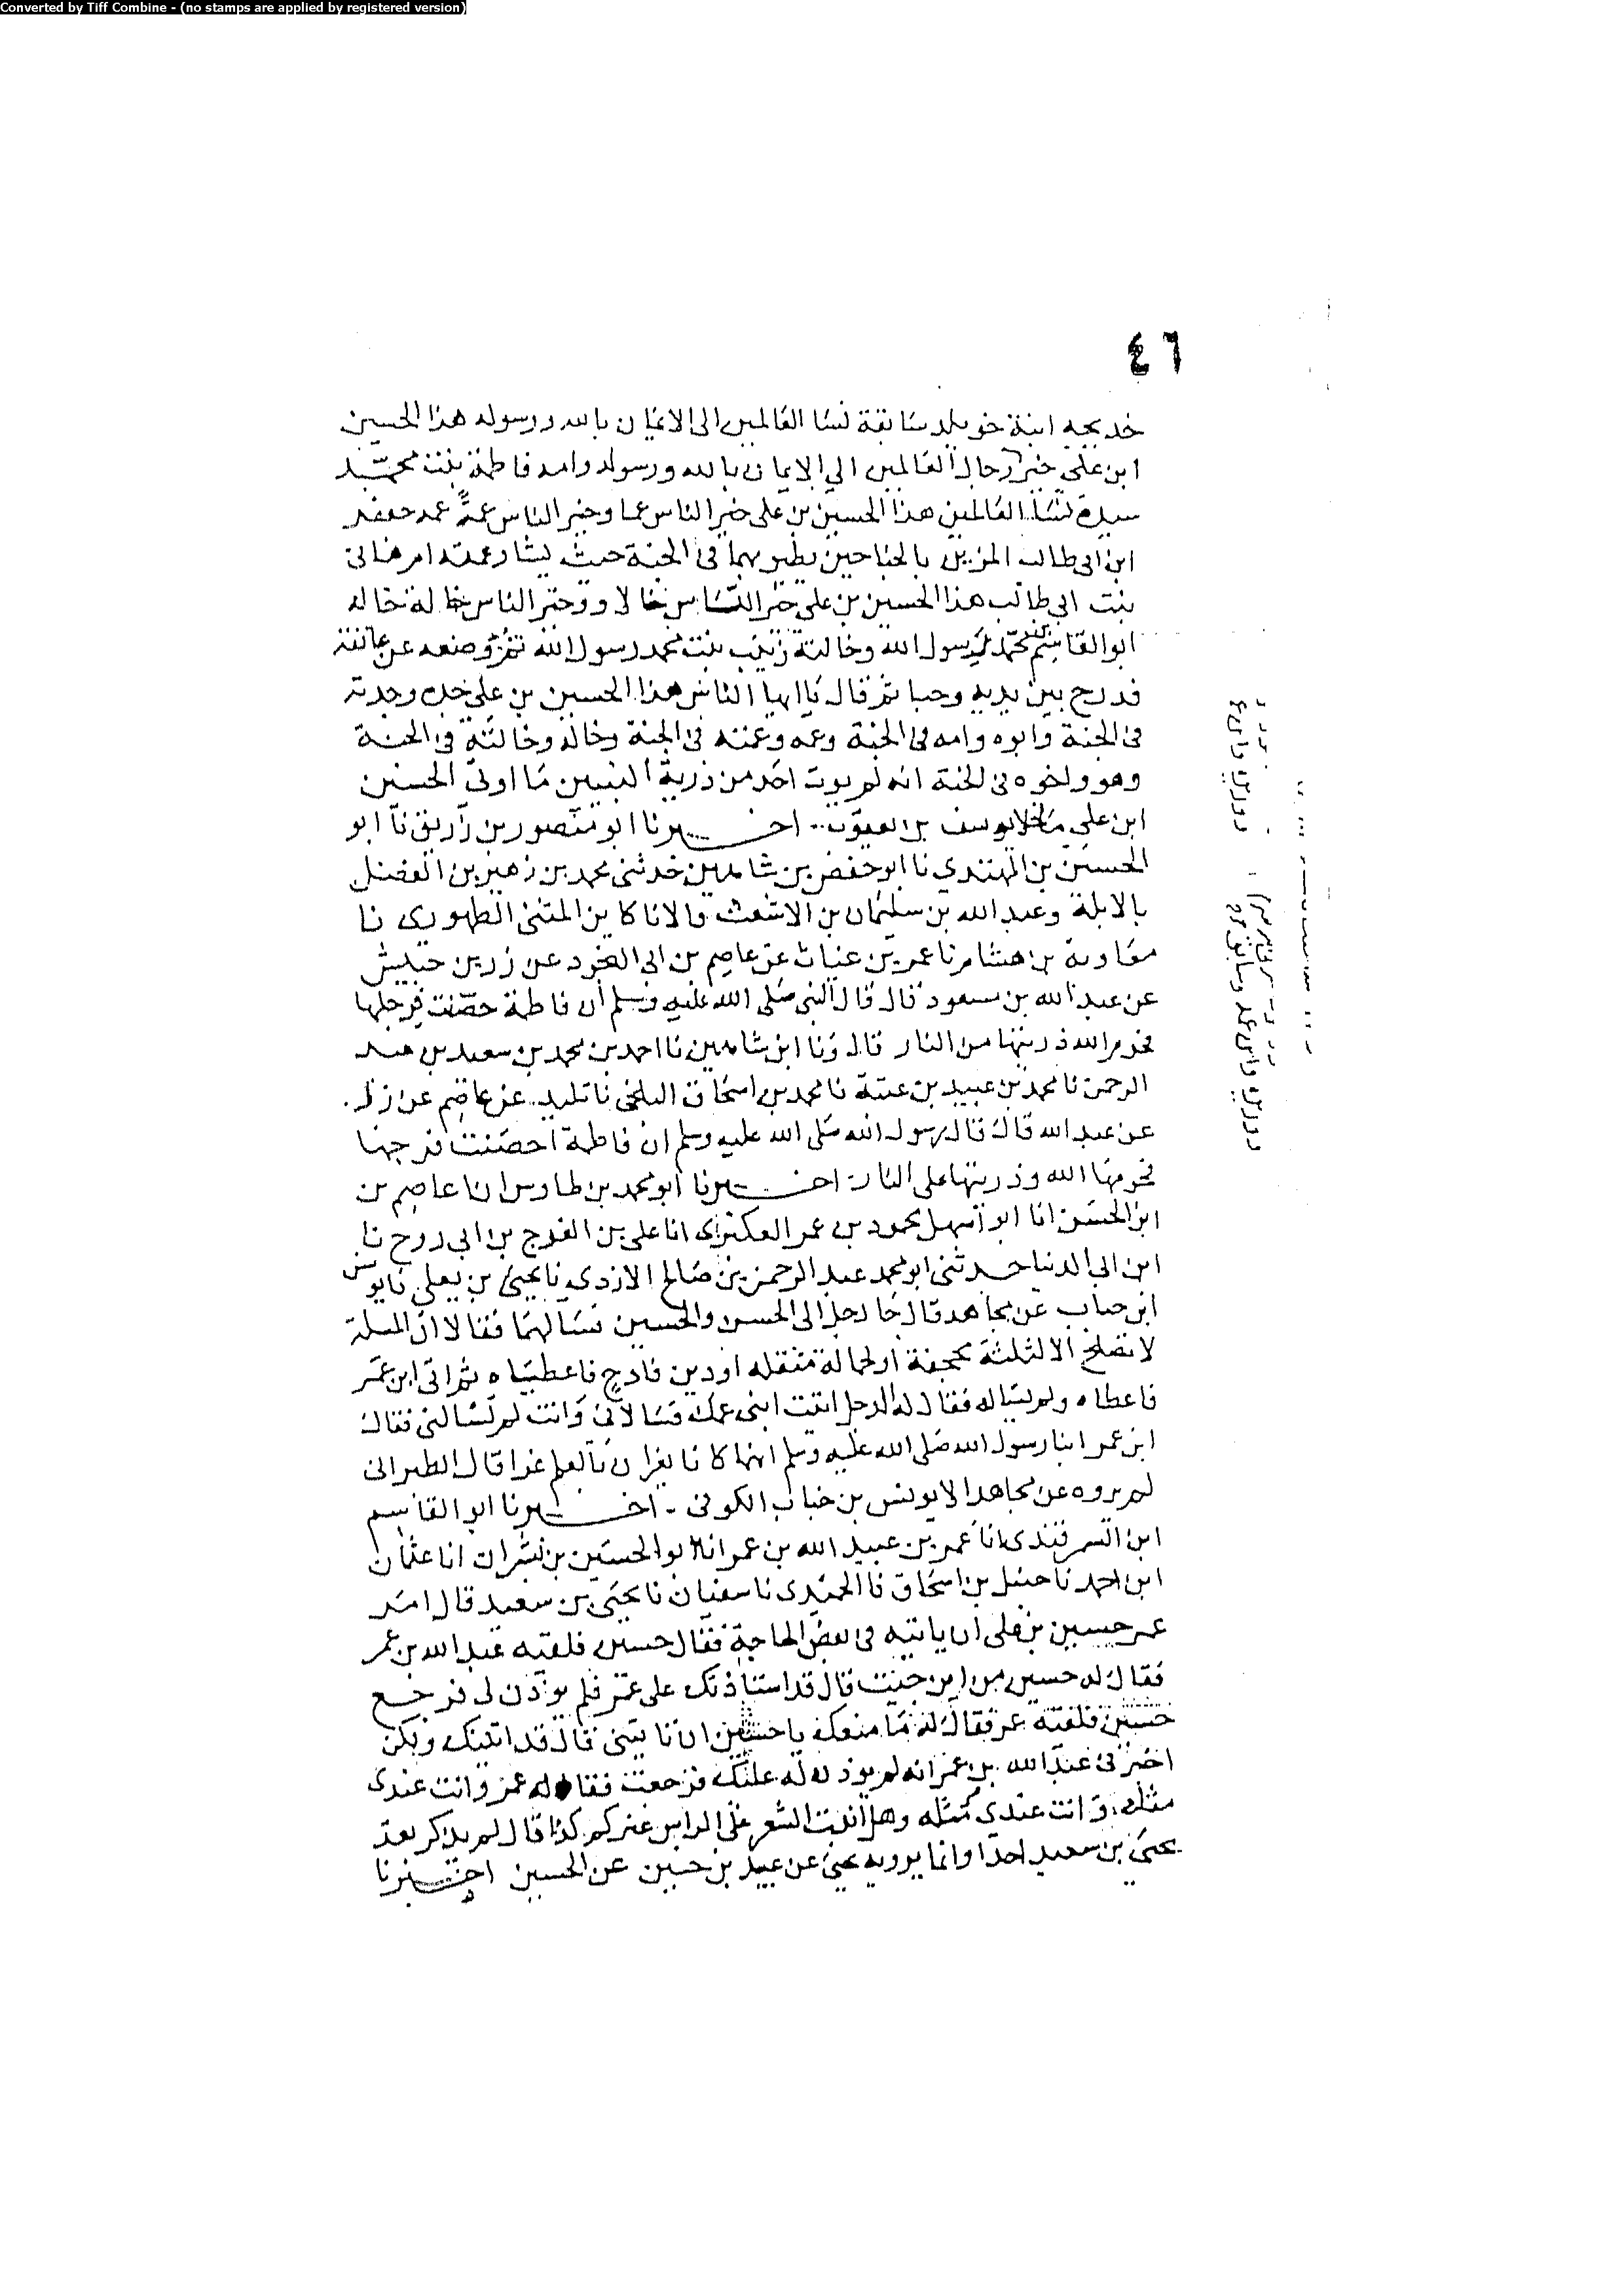 Converted by Tiff Combine - (no stamps are applied by registered version)
٤٦
خديجه ابنة خويلد سابقة نسا العالمين الى الايمان بالله ورسوله هذا الحسين
ابن على خير رجال العالمين الى الايمان بالله ورسوله وامه فاطمة بنت محمد
سيدة نسا العالمين هذا الحسين بن على خير الناس عما وخير الناس عمة عمه جعفر
ابن ابى طالب المزين بالجناحين يطير بهما فى الجنة حيث يشا وعمته ام هانى
بنت ابى طالب هذا الحسين بن على خير الناس خالا وخير الناس خالة خاله
ابو القاسم بن محمد رسول الله وخالته زينب بنت محمد رسول الله ثم وضعه عن عاتقه
فدرج بين يديه وحبا ثم قال يا ايها الناس هذا الحسين بن على جده وجدته
فى الجنة وابوه وامه فى الجنة وعمه وعمته فى الجنة وخاله وخالته فى الجنة
وهو واخوه فى الجنة انه لم يوت احد من ذرية النبيين ما اوتى الحسين
ابن على ما خلا يوسف بن يعقوب اخبرنا ابو منصور بن زريق نا ابو
الحسين بن المهتدى نا ابو حفص بن شاهين حدثنى محمد بن زهير بن الفضل
بالابلة وعبد الله بن سليمان بن الاشعث قالا نا كا بن المثنى الطهوى نا
معاوية بن هشام نا عمر بن غياث عن عاصم بن ابى النجود عن زر بن حبيش
عن عبد الله بن مسعود قال قال النبى صلى الله عليه وسلم ان فاطمة حصنت فرجها
فحرم الله ذريتها من النار قال ونا ابن شاهين نا احمد بن محمد بن سعيد بن عبد
الرحمن نا محمد بن عبيد بن عتبة نا محمد بن اسحاق البلخى نا تليد عن عاصم عن زر
عن عبد الله قال قال رسول الله صلى الله عليه وسلم ان فاطمة احصنت فرجها
فحرمها الله وذريتها على النار اخبرنا ابو محمد بن طاوس انا عاصم بن
ابن الحسن انا ابو سهل محمود بن عمر العكبرى انا على بن الفرج بن ابى روح نا
ابن ابى الدنيا حدثنى ابو محمد عبد الرحمن بن صالح الازدى نا يحيى بن يعلى نا يونس
ابن خباب عن مجاهد قال جا رجل الى الحسن والحسين فسالهما فقالا ان المسلة
لا تصلح الا لثلثة لحاجة مجحفة او لحمالة مثقله او دين فادح فاعطياه ثم اتى ابن عمر
فاعطاه ولم يساله فقال له الرجل اتيت ابنى عمك فسالانى وانت لم تسالنى فقال
ابن عمر ابنا رسول الله صلى الله عليه وسلم انهما كانا يغران بالعلم غرا قال الطبرانى
لم يروه عن مجاهد الا يونس بن خباب الكوفى اخبرنا ابو القاسم
ابن السمرقندى انا عمر بن عبيد الله بن عمر انا ابو الحسين بن بشران انا عثمان
ابن احمد نا حنبل بن اسحاق نا الحميدى نا سفيان نا يحيى بن سعيد قال امر
عمر حسين بن على ان ياتيه فى بعض الحاجة فقال حسين فلقيه عبد الله بن عمر
فقال له حسين من اين جيت قال قد استاذنت على عمر فلم يوذن لى فرجع
حسين فلقيه عمر فقال له ما منعك يا حسين ان تاتينى قال قد اتيتك ولكن
اخبرنى عبد الله بن عمر انه لم يوذن له عليك فرجعت فقال له عمر وانت عندى
مثله وانت عندى مثله وهل انبت الشعر على الراس غيركم كذا قال لم يذكر بعد
يحيى بن سعيد احدا وانما يرويه يحيى عن عبيد بن حسين عن الحسين اخبرنا